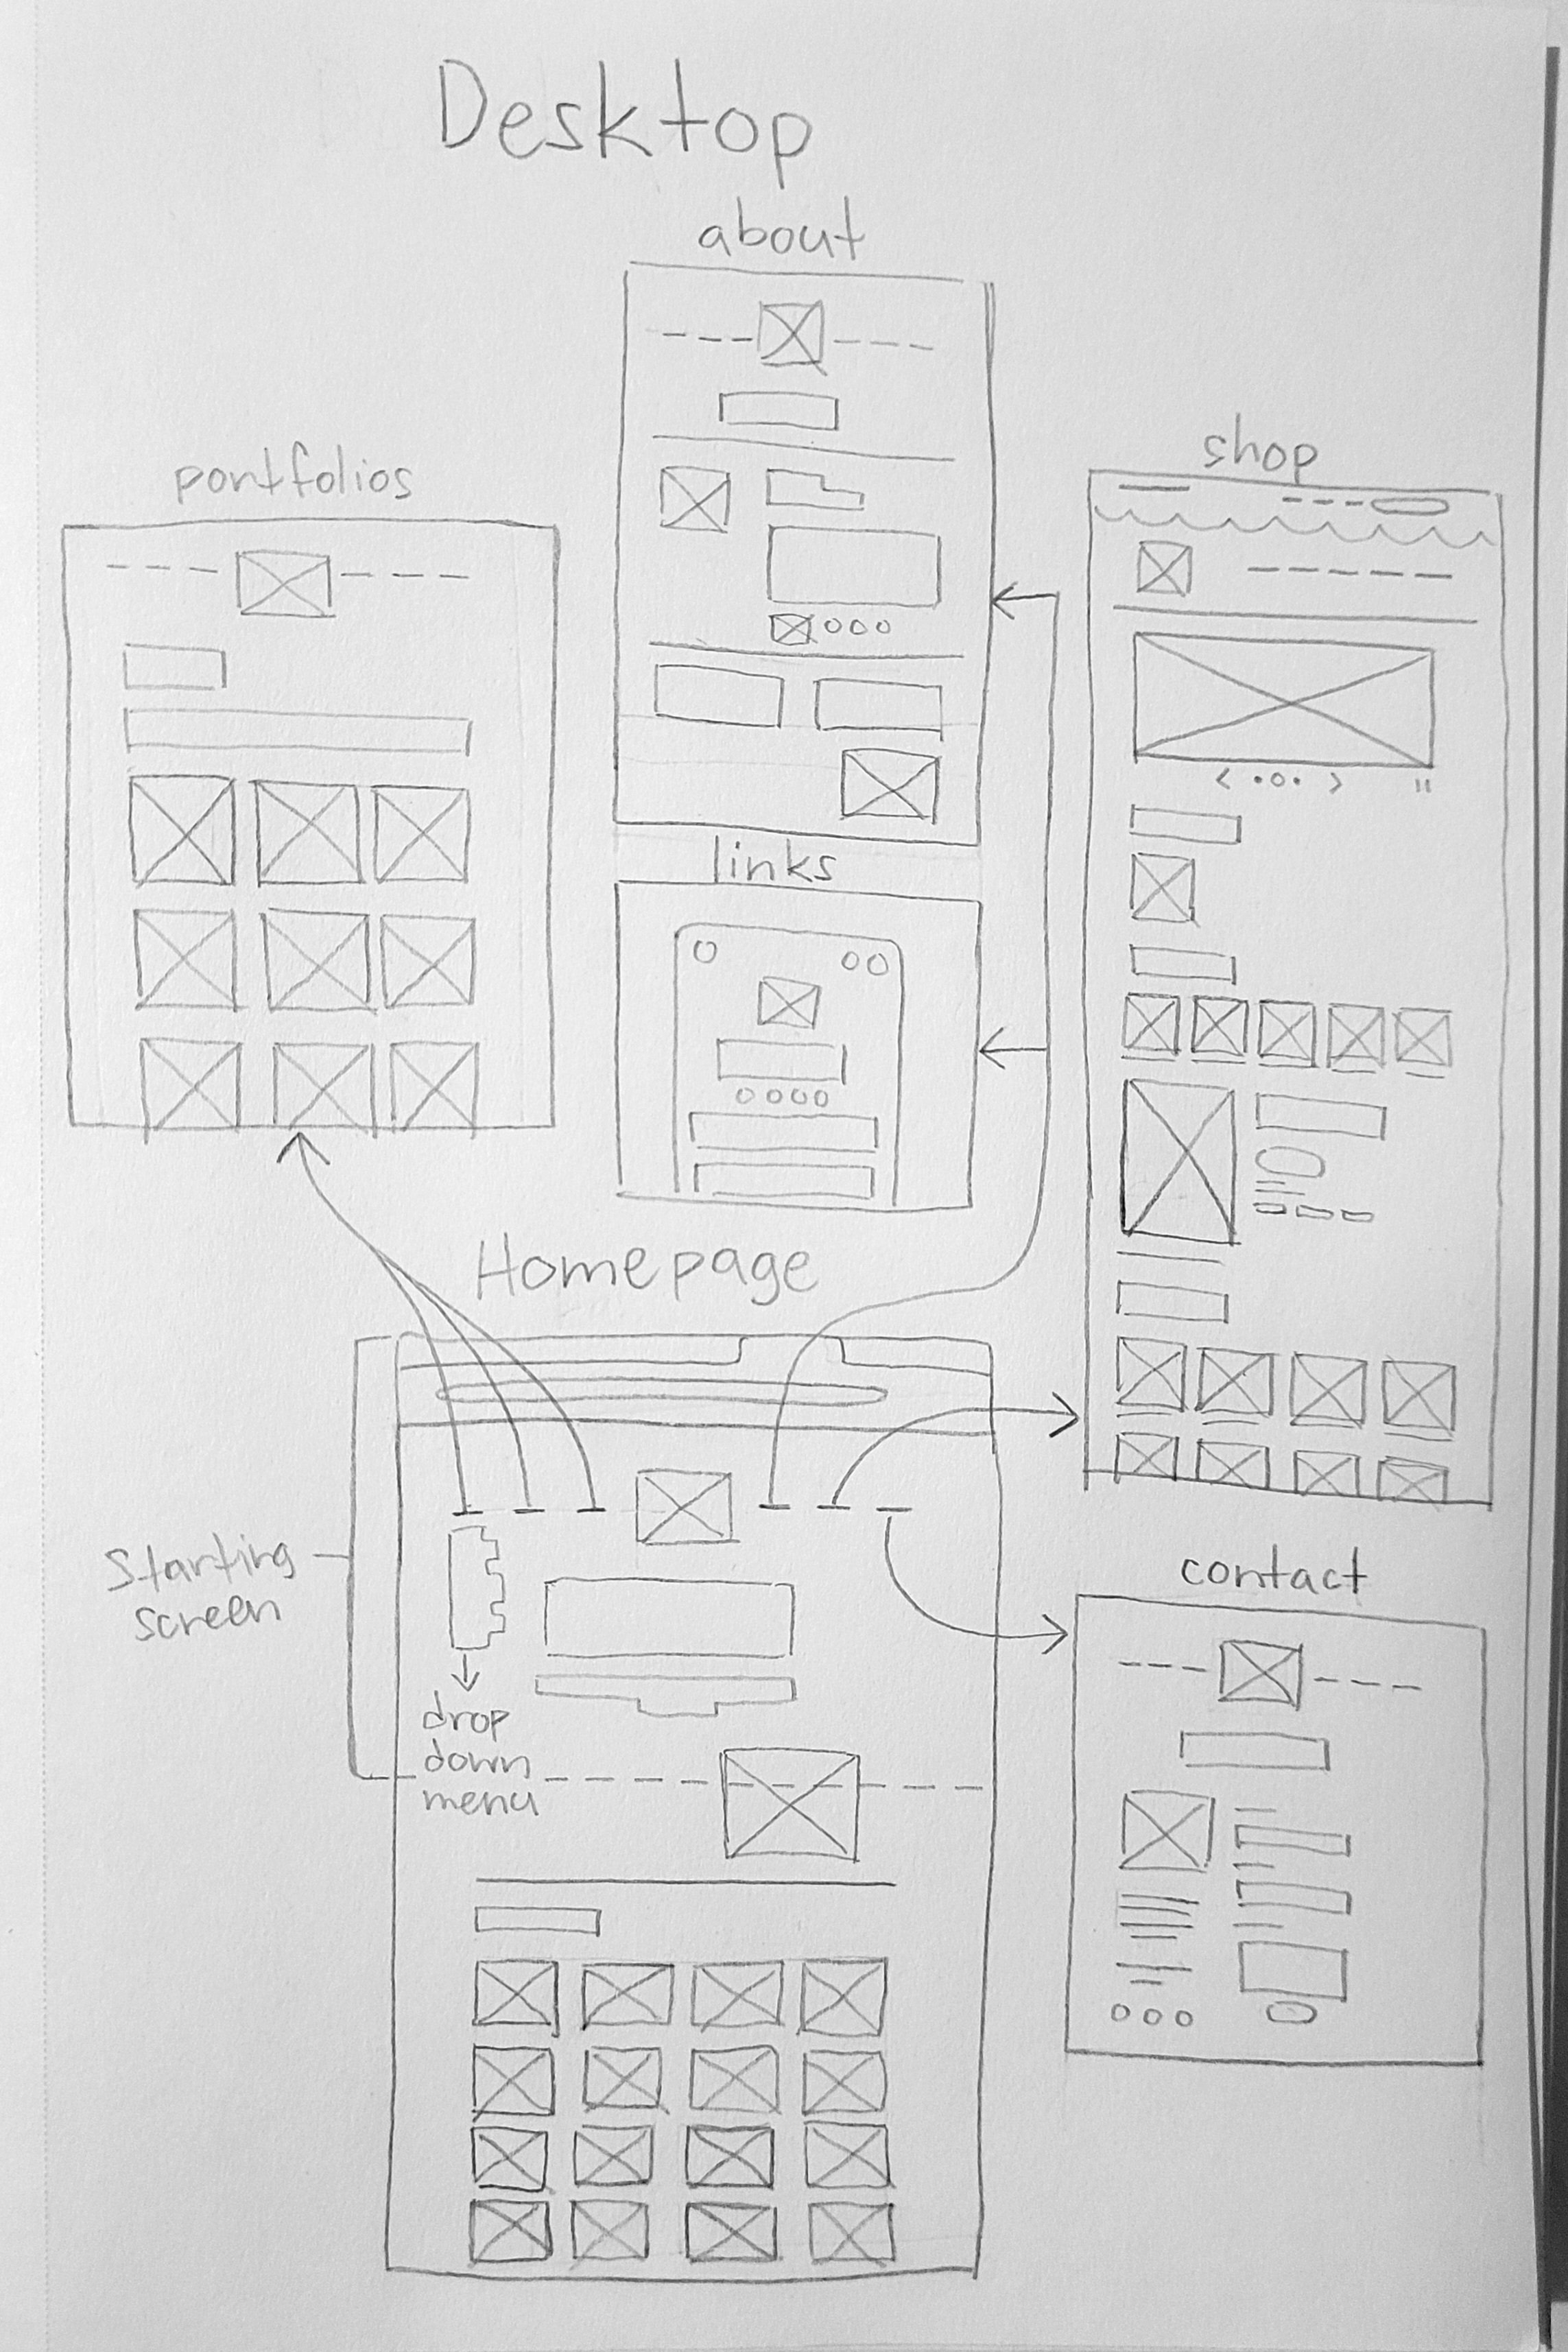 Desktop
about
portfolios
shop
links
Homepage
Starting
screen
drop
down
menu
contact